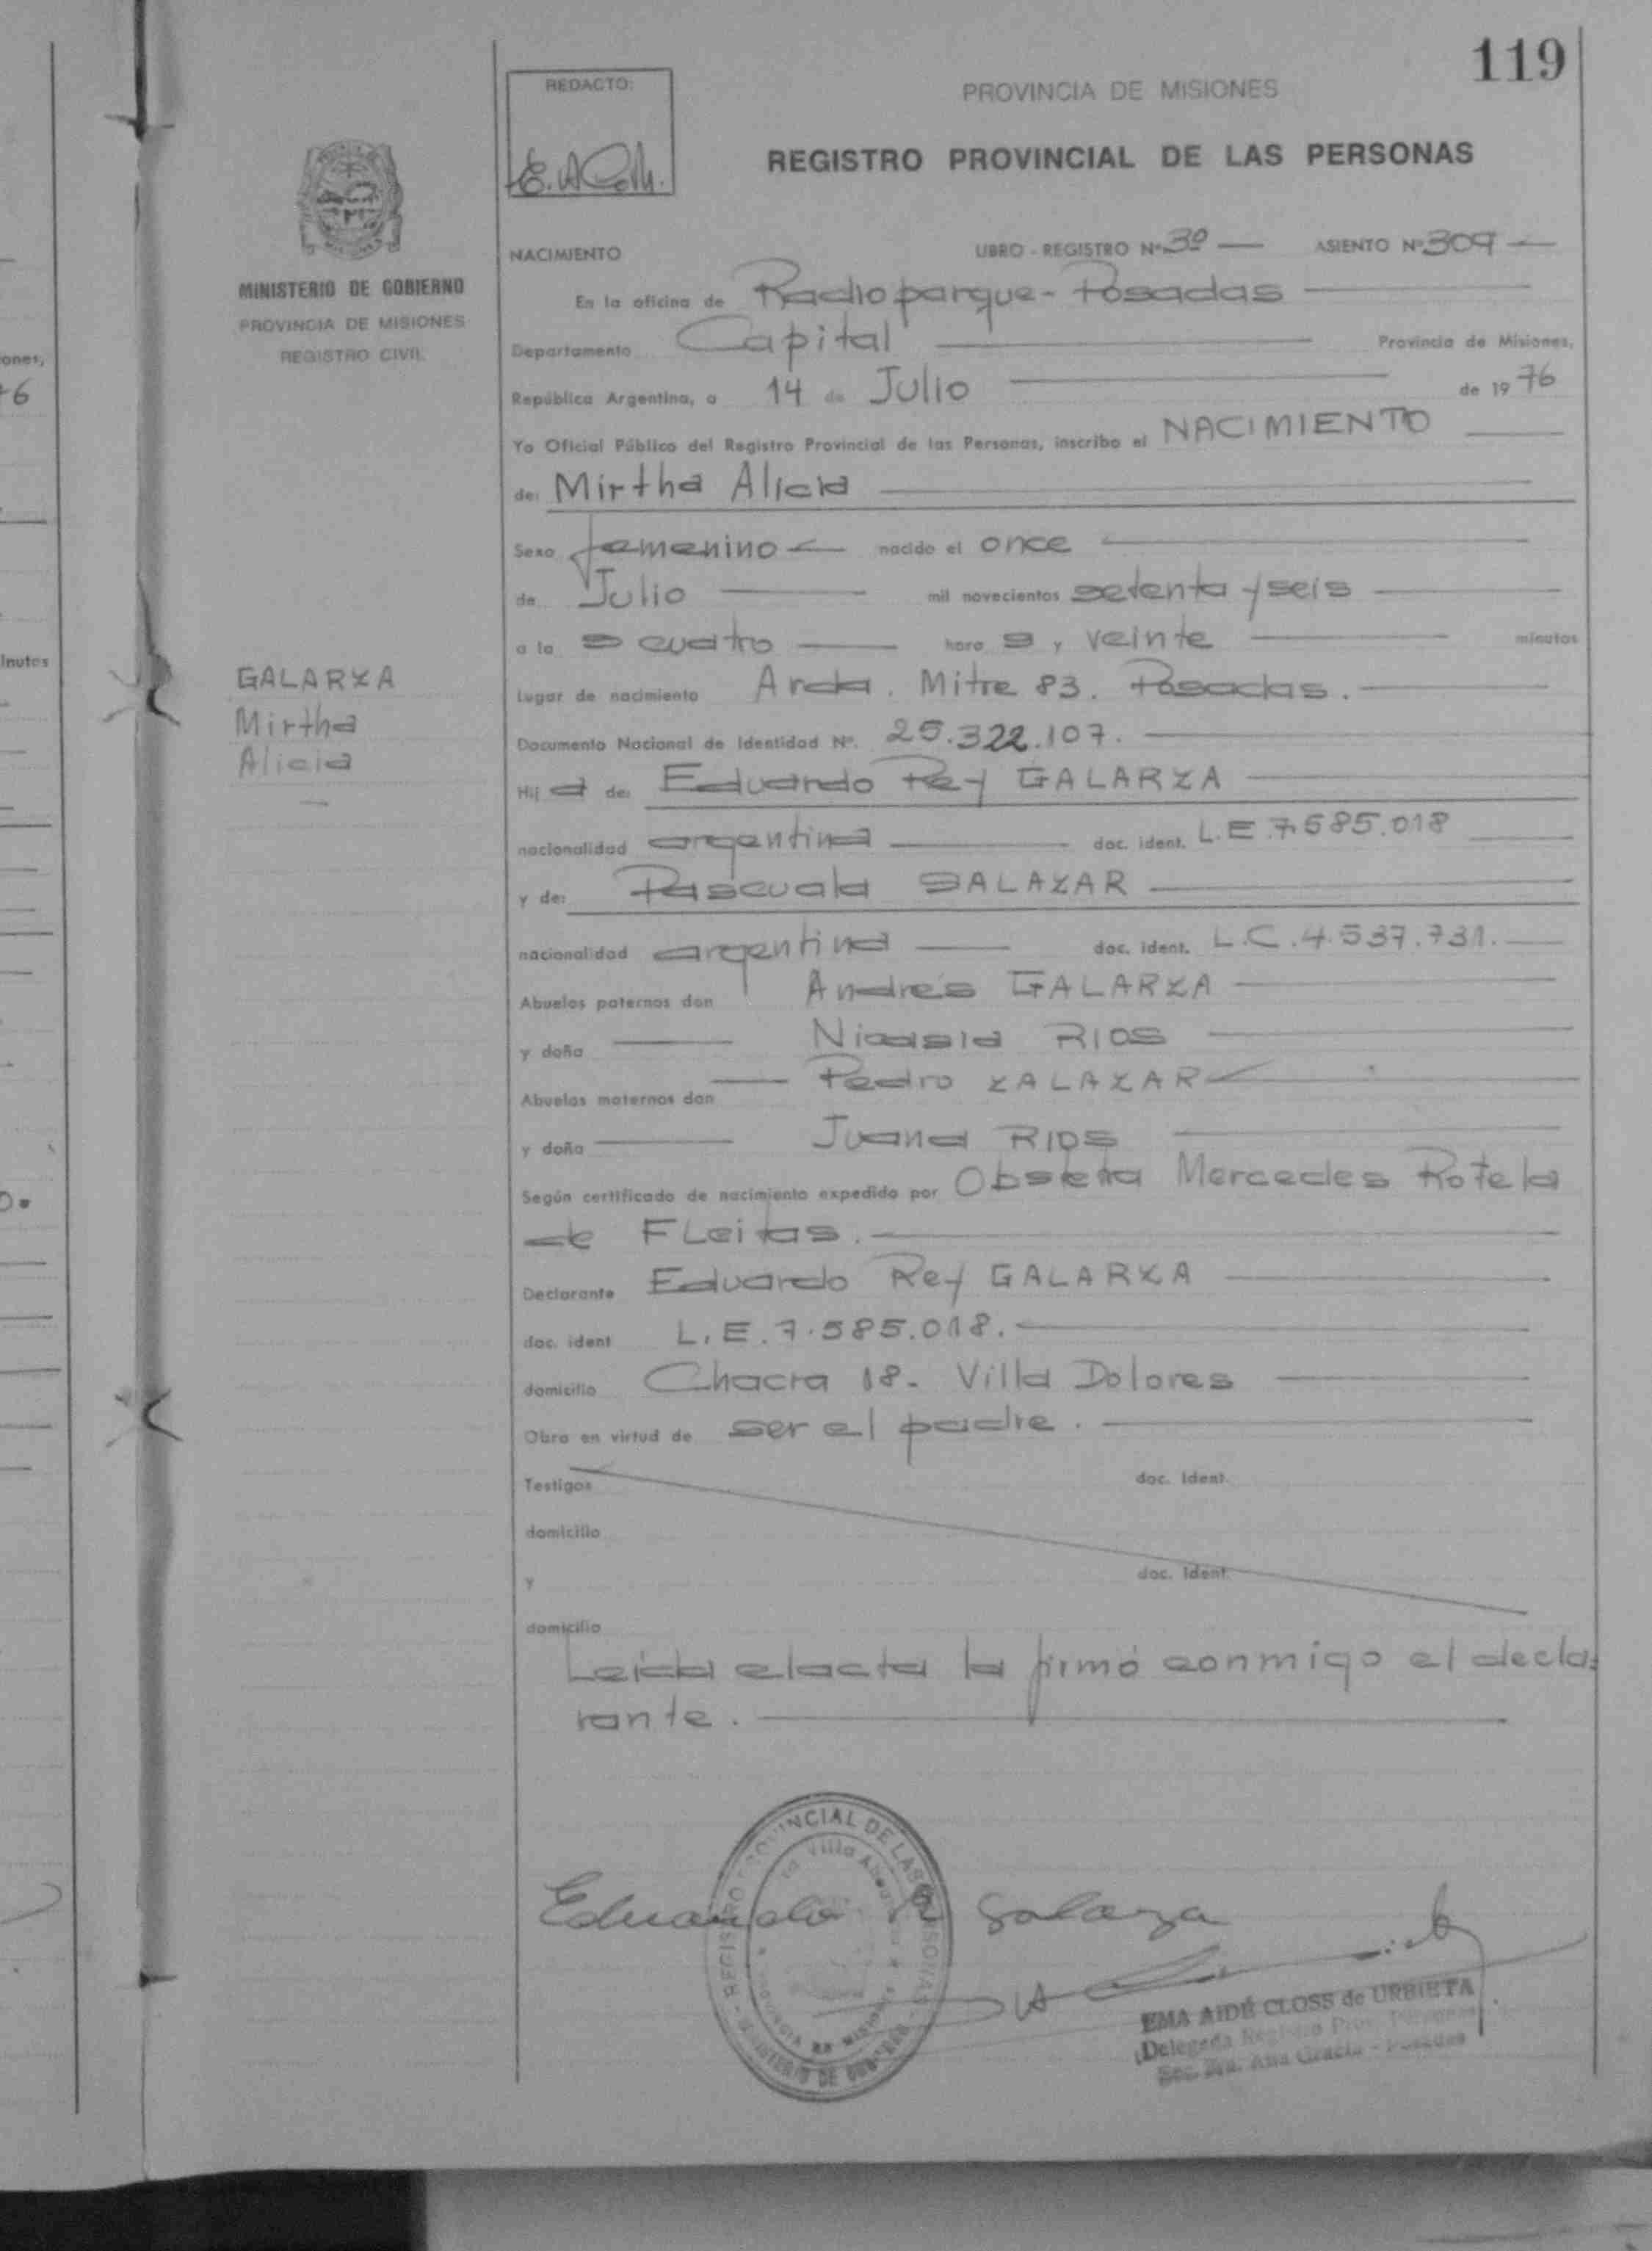 119
REDACTO:
PROVINCIA DE MISIONES
REGISTRO PROVINCIAL DE LAS PERSONAS
MINISTERIO DE GOBIERNO
PROVINCIA DE MISIONES
REGISTRO CIVIL
GALARZA
Mirtha
Alicia
NACIMIENTO LIBRO - REGISTRO Nº 3º — ASIENTO Nº 309 —
En la oficina de Radioparque - Posadas
Departamento Capital Provincia de Misiones,
República Argentina, a 14 de Julio de 1976
Yo Oficial Público del Registro Provincial de las Personas, inscribo el NACIMIENTO
de: Mirtha Alicia
Sexo femenino nacido el once
de Julio mil novecientos setenta y seis
a la s cuatro hora s y veinte minutos
Lugar de nacimiento Avda. Mitre 83. Posadas.
Documento Nacional de Identidad Nº. 25.322.107.
Hij a de: Eduardo Rey GALARZA
nacionalidad argentina doc. ident. L.E.7.585.018
y de: Pascuala SALAZAR
nacionalidad argentina doc. ident. L.C.4.537.731.
Abuelos paternos don Andrés GALARZA
y doña Nicasia RIOS
Abuelos maternos don Pedro ZALAZAR
y doña Juana RIOS
Según certificado de nacimiento expedido por Obstetra Mercedes Rotela
de Fleitas.
Declarante Eduardo Rey GALARZA
doc. ident L.E.7.585.018.
domicilio Chacra 18- Villa Dolores
Obra en virtud de ser el padre.
Testigos doc. Ident.
domicilio
y doc. Ident.
domicilio
Leida el acta la firmó conmigo el decla-
rante.
Eduardo R Galarza
EMA AIDÉ CLOSS de URBIETA
Delegada Registro Prov.